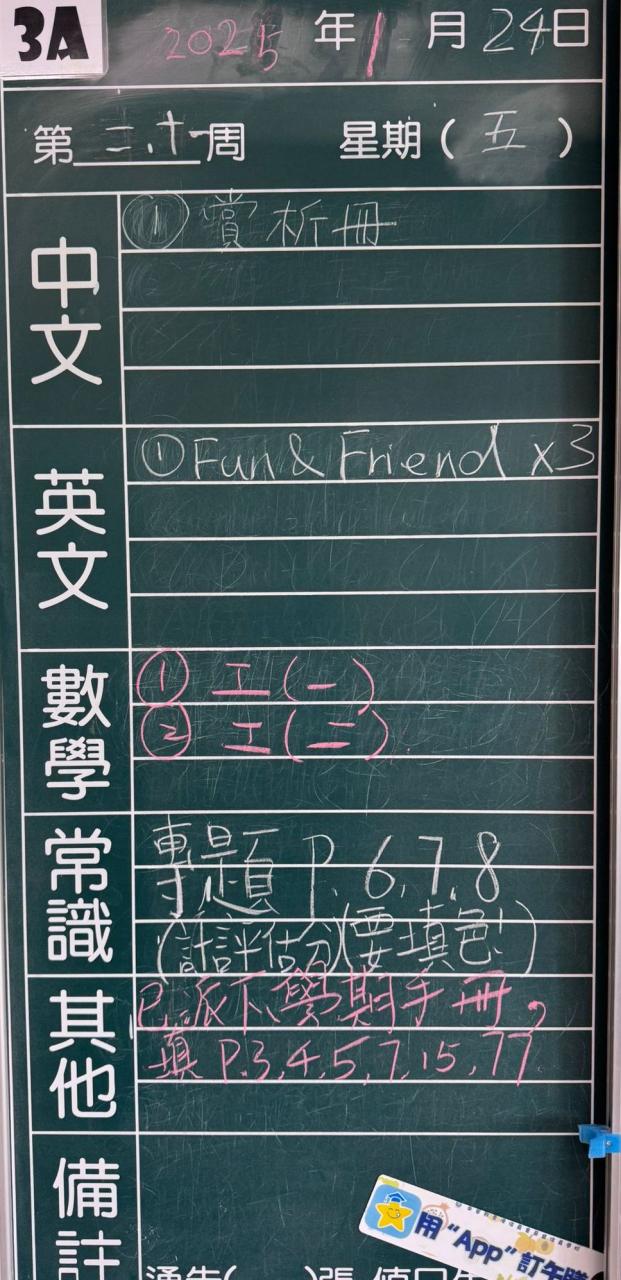 3A
2025年1月24日
第二十一周 星期(五)
中文
① 賞析冊
英文
① Fun & Friend x3
數學
① 工(一)
② 工(二)
常識
專題 P. 6, 7, 8
(計評估分)(要填色!)
其他
已派下學期手冊,
填 P.3, 4, 5, 7, 15, 77
備註
用“App”訂午
通告( )張